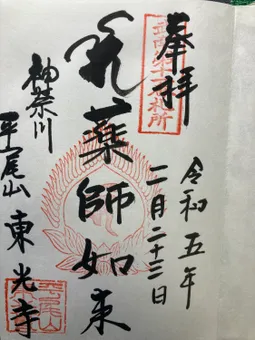 奉拝
令和五年
二月二十三日
薬師如来
神奈川
平尾山 東光寺